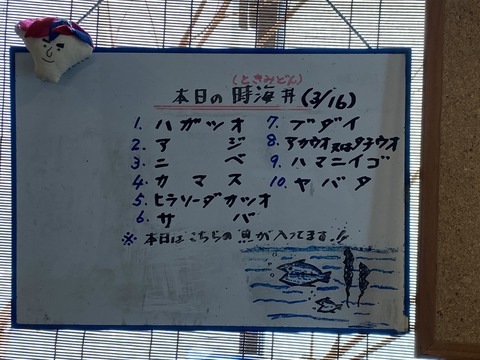 (ときみどん)
本日の 時海丼 (3/16)
1. ハガツオ
2. アジ
3. ニベ
4. カマス
5. ヒラソーダカツオ
6. サバ
7. ブダイ
8. アカウオ又はタチウオ
9. ハマニイゴ
10. ヤバタ
※ 本日はこちらの魚が入ってます!!